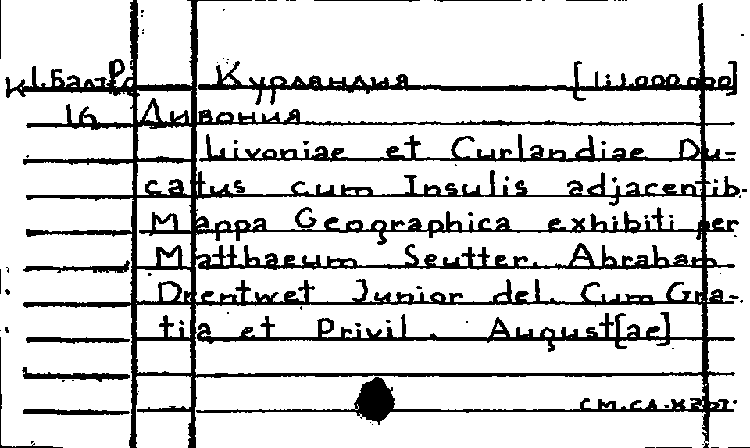 К 1.БалтРо Курляндия [1:1.000.000]
16 Ливония
Livoniae et Curlandiae Du-
catus cum Insulis adjacentib.
Mappa Geographica exhibiti per
Matthaeum Seutter. Abraham
Drentwet Junior del. Cum Gra-
tila et Privil. August[ae]
см.сл.